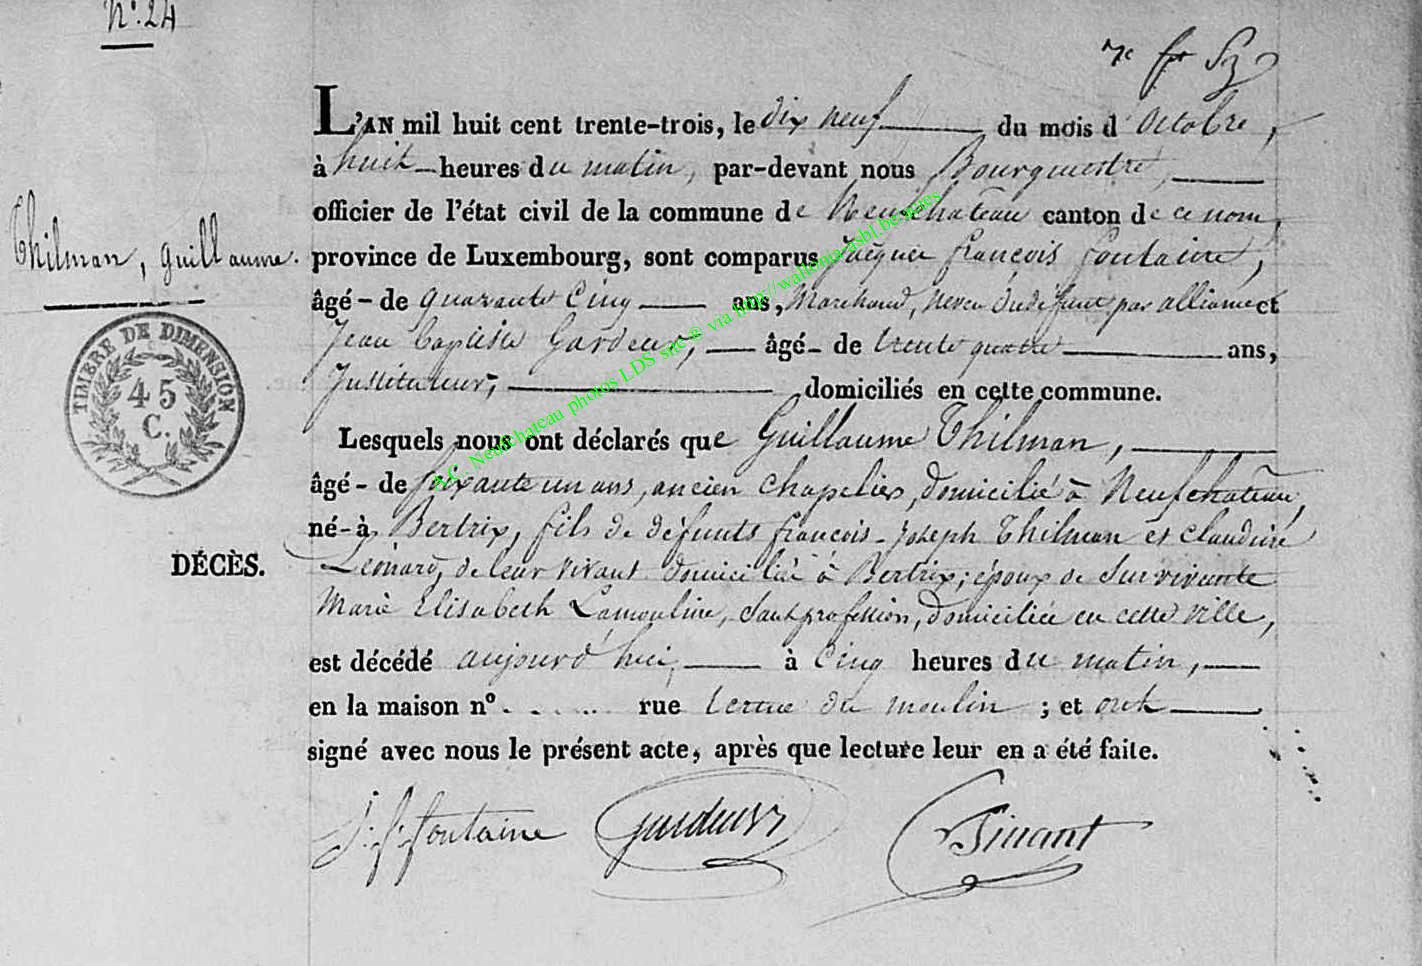 N°. 24
L'AN mil huit cent trente-trois, le dix neuf du mois d'Octobre,
à huit heures du matin, par-devant nous Bourguestre,
officier de l'état civil de la commune de Neufchateau canton de ce nom,
Thilman, guillaume.
province de Luxembourg, sont comparus Jacques françois fontaine,
âgé - de quarante Cinq ans, Marchand, neveu du défunt par alliance et
Jean Baptiste Gardeur, âgé - de trente quatre ans,
TIMBRE DE DIMENSION
45
C.
Instituteur, domiciliés en cette commune.
Lesquels nous ont déclarés que Guillaume Thilman,
âgé - de soixante un ans, ancien chapelier, domicilié à Neufchateau,
né - à Bertrix, fils de défunts françois - Joseph Thilman et claudine
DÉCÈS.
Léonard, de leur vivant domicilié à Bertrix; époux de Survivante
Marie Elisabeth Lamouline, sans profession, domiciliée en cette ville,
est décédé aujourd'hui, à Cinq heures du matin,
en la maison n°. . . . . . rue tertre du moulin ; et ont
signé avec nous le présent acte, après que lecture leur en a été faite.
J. f. fontaine Gardeur
A.C. Neufchateau photos LDS site @ via http://wallonica